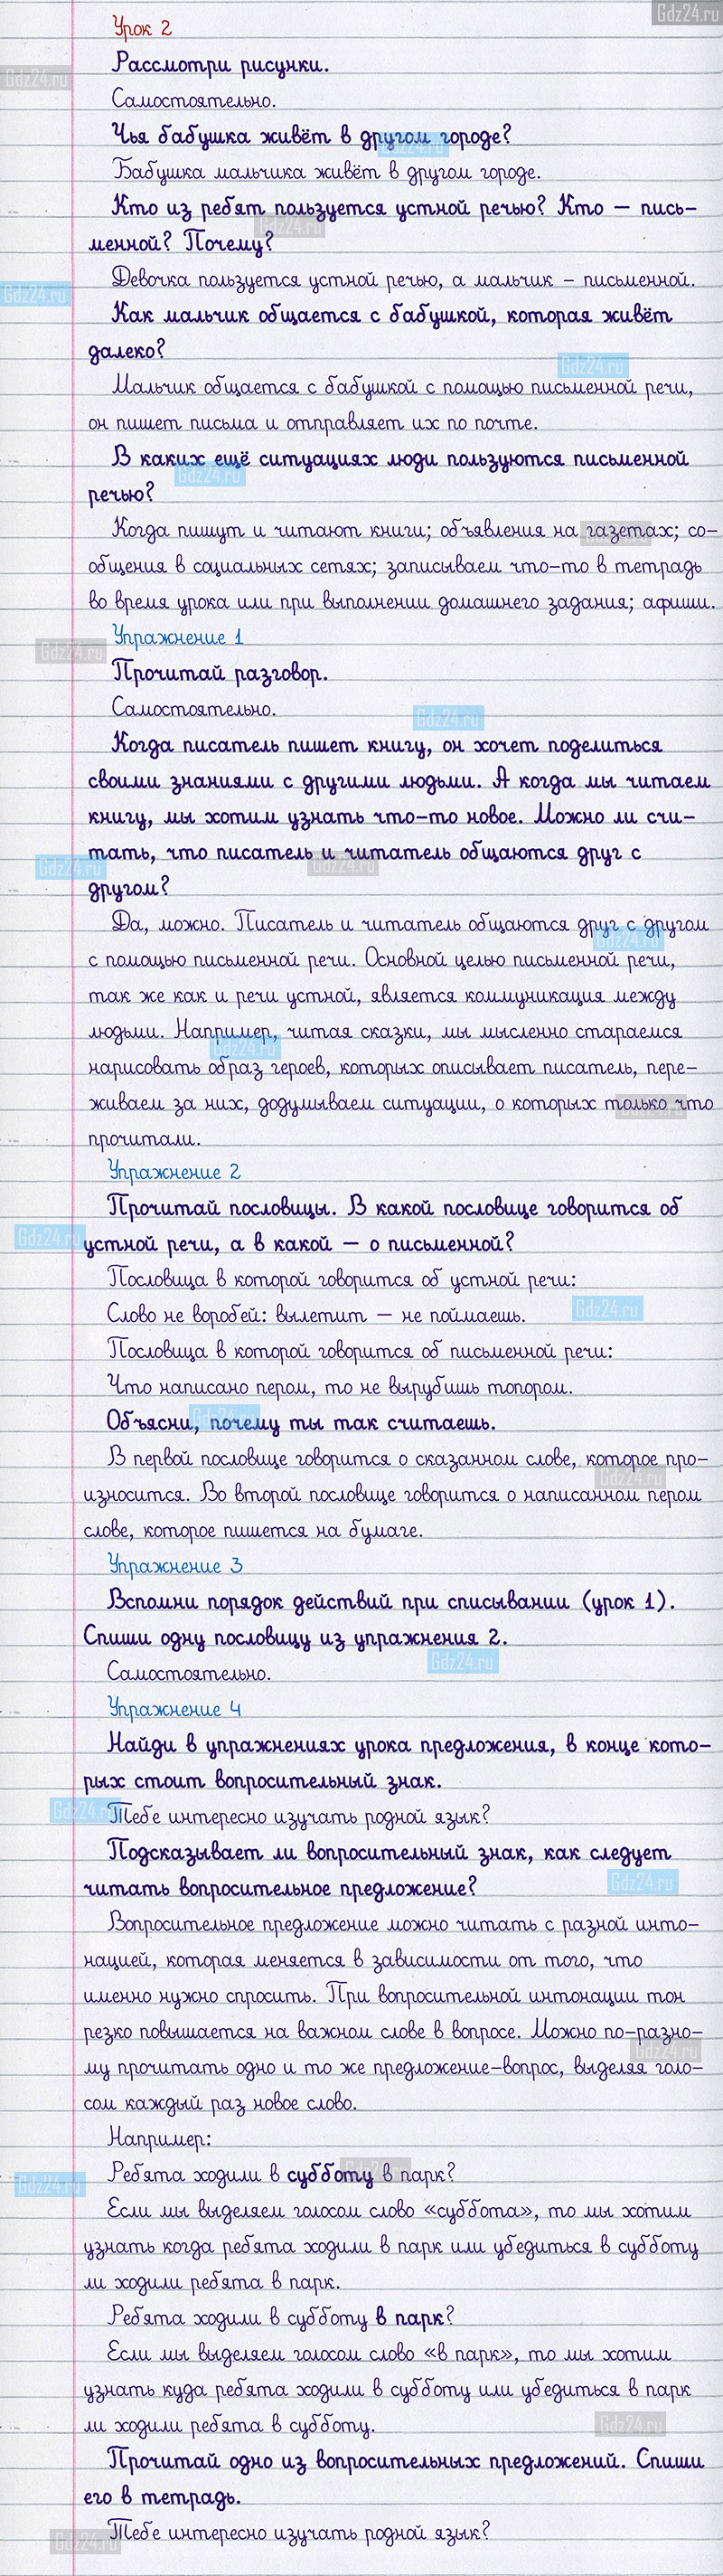 Gdz24.ru
Урок 2
Рассмотри рисунки.
Gdz24.ru
Самостоятельно.
Чья бабушка живёт в другом городе?
Gdz24.ru
Бабушка мальчика живёт в другом городе.
Кто из ребят пользуется устной речью? Кто – пись-
Gdz24.ru
менной? Почему?
Девочка пользуется устной речью, а мальчик – письменной.
Gdz24.ru
Как мальчик общается с бабушкой, которая живёт
далеко?
Gdz24.ru
Мальчик общается с бабушкой с помощью письменной речи,
он пишет письма и отправляет их по почте.
В каких ещё ситуациях люди пользуются письменной
Gdz24.ru
речью?
Когда пишут и читают книги; объявления на газетах; со-
Gdz24.ru
общения в социальных сетях; записываем что-то в тетрадь
во время урока или при выполнении домашнего задания; афиши.
Упражнение 1
Gdz24.ru
Прочитай разговор.
Самостоятельно.
Gdz24.ru
Когда писатель пишет книгу, он хочет поделиться
своими знаниями с другими людьми. А когда мы читаем
книгу, мы хотим узнать что-то новое. Можно ли счи-
тать, что писатель и читатель общаются друг с
Gdz24.ru
Gdz24.ru
другом?
Да, можно. Писатель и читатель общаются друг с другом
Gdz24.ru
с помощью письменной речи. Основной целью письменной речи,
так же как и речи устной, является коммуникация между
людьми. Например, читая сказки, мы мысленно стараемся
Gdz24.ru
нарисовать образ героев, которых описывает писатель, пере-
живаем за них, додумываем ситуации, о которых только что
Gdz24.ru
прочитали.
Упражнение 2
Прочитай пословицы. В какой пословице говорится об
Gdz24.ru
устной речи, а в какой – о письменной?
Пословица в которой говорится об устной речи:
Слово не воробей: вылетит – не поймаешь.
Gdz24.ru
Пословица в которой говорится об письменной речи:
Что написано пером, то не вырубишь топором.
Объясни, почему ты так считаешь.
Gdz24.ru
В первой пословице говорится о сказанном слове, которое про-
Gdz24.ru
износится. Во второй пословице говорится о написанном пером
слове, которое пишется на бумаге.
Упражнение 3
Вспомни порядок действий при списывании (урок 1).
Спиши одну пословицу из упражнения 2.
Gdz24.ru
Самостоятельно.
Упражнение 4
Найди в упражнениях урока предложения, в конце кото-
рых стоит вопросительный знак.
Gdz24.ru
Тебе интересно изучать родной язык?
Подсказывает ли вопросительный знак, как следует
читать вопросительное предложение?
Gdz24.ru
Вопросительное предложение можно читать с разной инто-
нацией, которая меняется в зависимости от того, что
именно нужно спросить. При вопросительной интонации тон
резко повышается на важном слове в вопросе. Можно по-разно-
Gdz24.ru
му прочитать одно и то же предложение-вопрос, выделяя голо-
сом каждый раз новое слово.
Например:
Ребята ходили в субботу в парк?
Gdz24.ru
Gdz24.ru
Если мы выделяем голосом слово «суббота», то мы хотим
узнать когда ребята ходили в парк или убедиться в субботу
ли ходили ребята в парк.
Ребята ходили в субботу в парк?
Если мы выделяем голосом слово «в парк», то мы хотим
узнать куда ребята ходили в субботу или убедиться в парк
ли ходили ребята в субботу.
Gdz24.ru
Прочитай одно из вопросительных предложений. Спиши
его в тетрадь.
Тебе интересно изучать родной язык?
Gdz24.ru